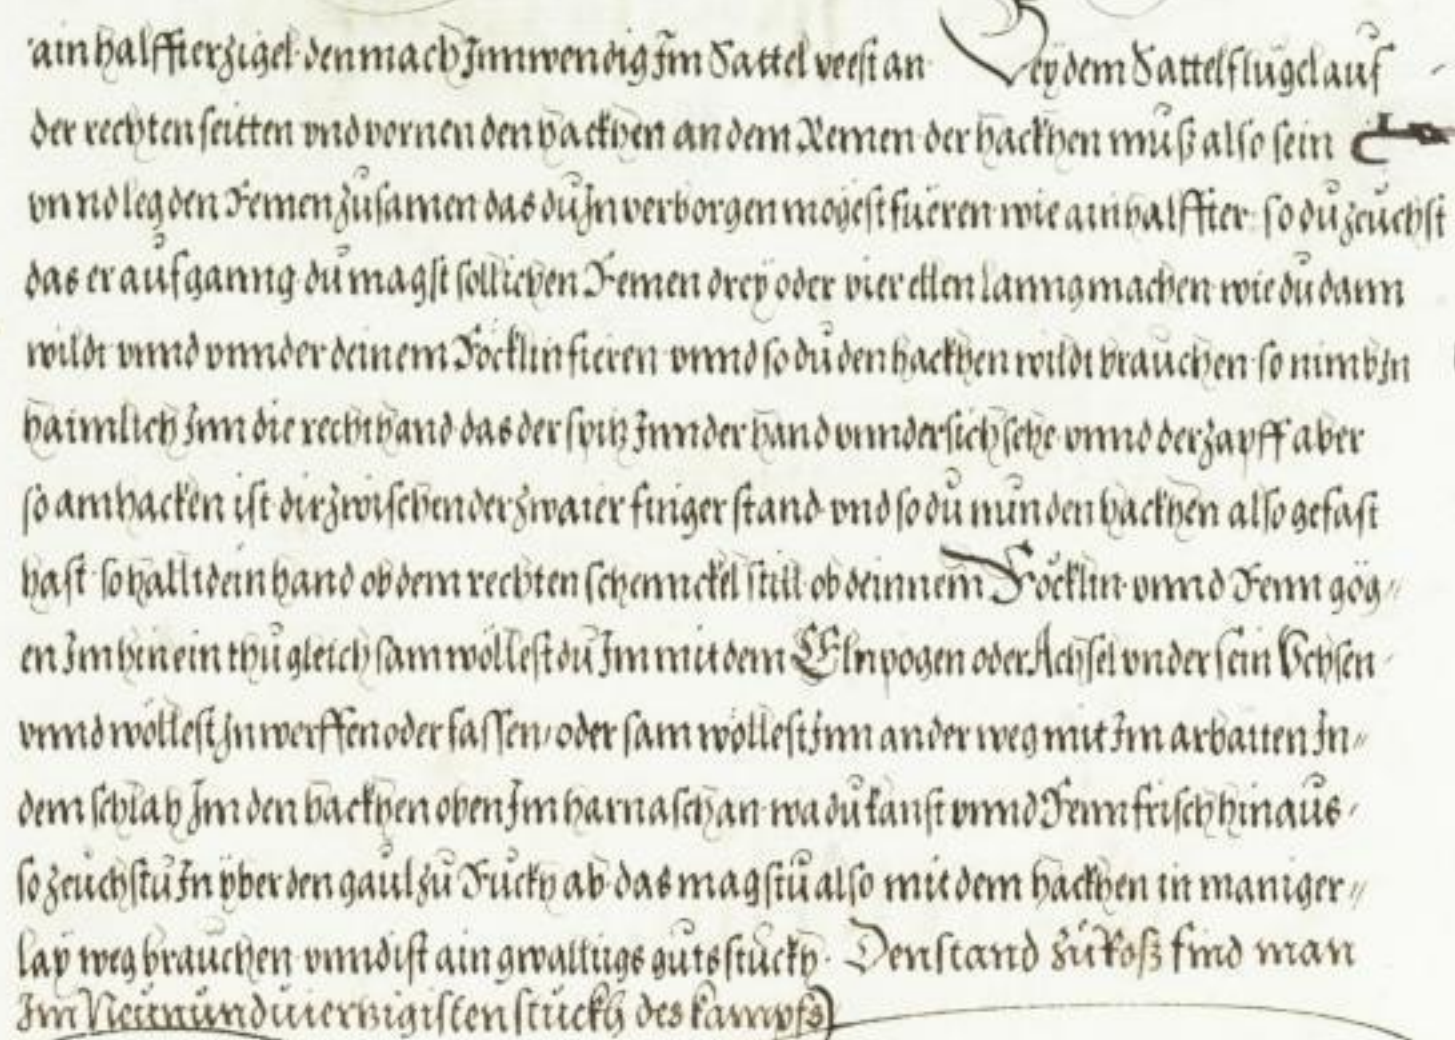 ain halffterzigel den mach Innwendig Im Sattel veest an Bey dem Sattelflügel auf
der rechten seitten vnd vornen den hackhen an dem Remen der hackhen muß also sein
vnnd leg den Remen zusamen das du In verborgen mögest füeren wie ain halffter so du zeuchst
das er auf ganng du magst sollichen Remen drey oder vier ellen lanng machen wie du dann
wildt vnnd vnnder deinem Röcklin fieren vnnd so du den hackhen wildt brauchen so nimb In
haimlich Inn die recht hand das der spitz Inn der hand vnndersich sehe vnnd der zapff aber
so am hacken ist dir zwischen der zwaier finger stand vnd so du nun den hackhen also gefast
hast so hallt dein hand ob dem rechten schennckel still ob deinnem Röcklin vnnd Renn gög〃
en Im hinein thu gleich sam wöllest du Im mit dem Elnpogen oder Achsel vnder sein Vchsen
vnnd wöllest In werffen oder fassen, oder sam wöllest Inn ander weg mit Im arbaiten In〃
dem schlah Im den hackhen oben Im harnasch an wa du kanst vnnd Renn frisch hinaus
so zeuchstu In yber den gaul zu Ruckh ab das magstu also mit dem hackhen in maniger〃
lay weg brauchen vnnd ist ain gwalltigs guts stuckh. Den stand zu Roß find man
Im Neunundvierzigisten stuckh des kampfs